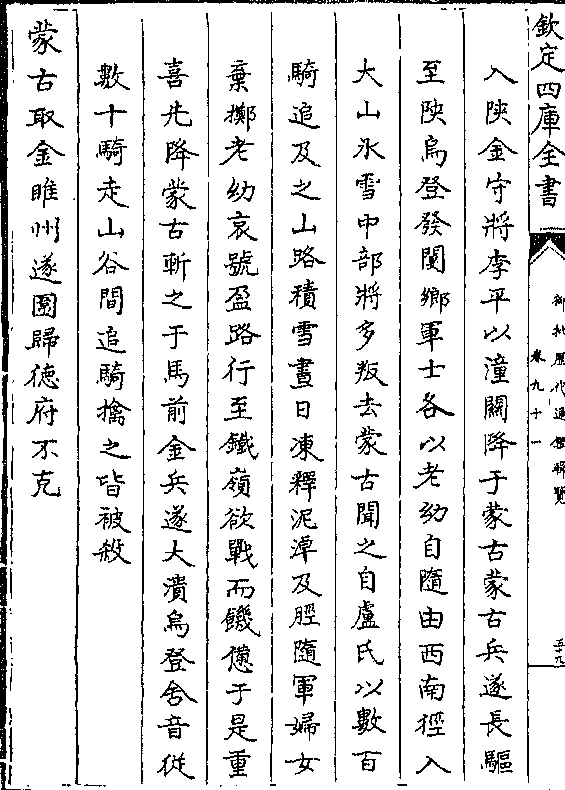 欽定四庫全書
御批歷代通鑑輯覽
卷九十一
入陝金守將李平以潼關降于蒙古蒙古兵遂長驅
至陝烏登發閿鄉軍士各以老幼自隨由西南徑入
大山氷雪中部將多叛去蒙古聞之自盧氏以數百
騎追及之山路積雪晝日凍釋泥淖及脛隨軍婦女
棄擲老幼哀號盈路行至鐵嶺欲戰而饑憊于是重
喜先降蒙古斬之于馬前金兵遂大潰烏登舍音從
數十騎走山谷間追騎擒之皆被殺
蒙古取金睢州遂圍歸德府不克